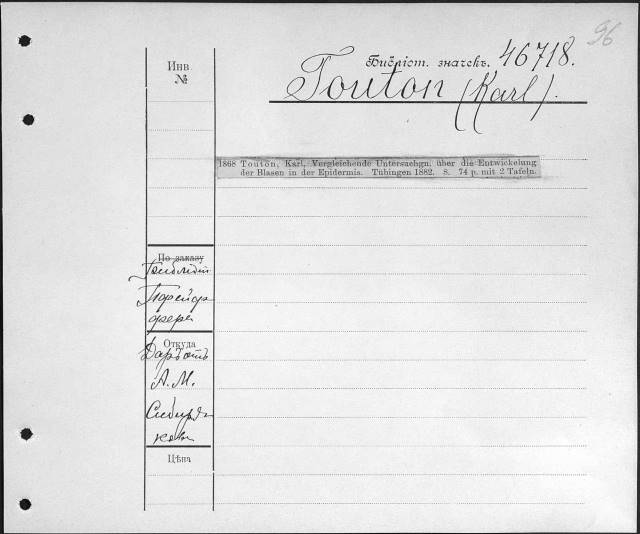 96
Библіот. значекъ. 46718.
Инв.
№
Touton (Karl).
1868 Touton, Karl, Vergleichende Untersuchgn. über die Entwickelung
der Blasen in der Epidermis. Tübingen 1882. 8. 74 p. mit 2 Tafeln.
По заказу
Откуда
Даръ отъ
А. М.
Сибиря-
кова
Цѣна